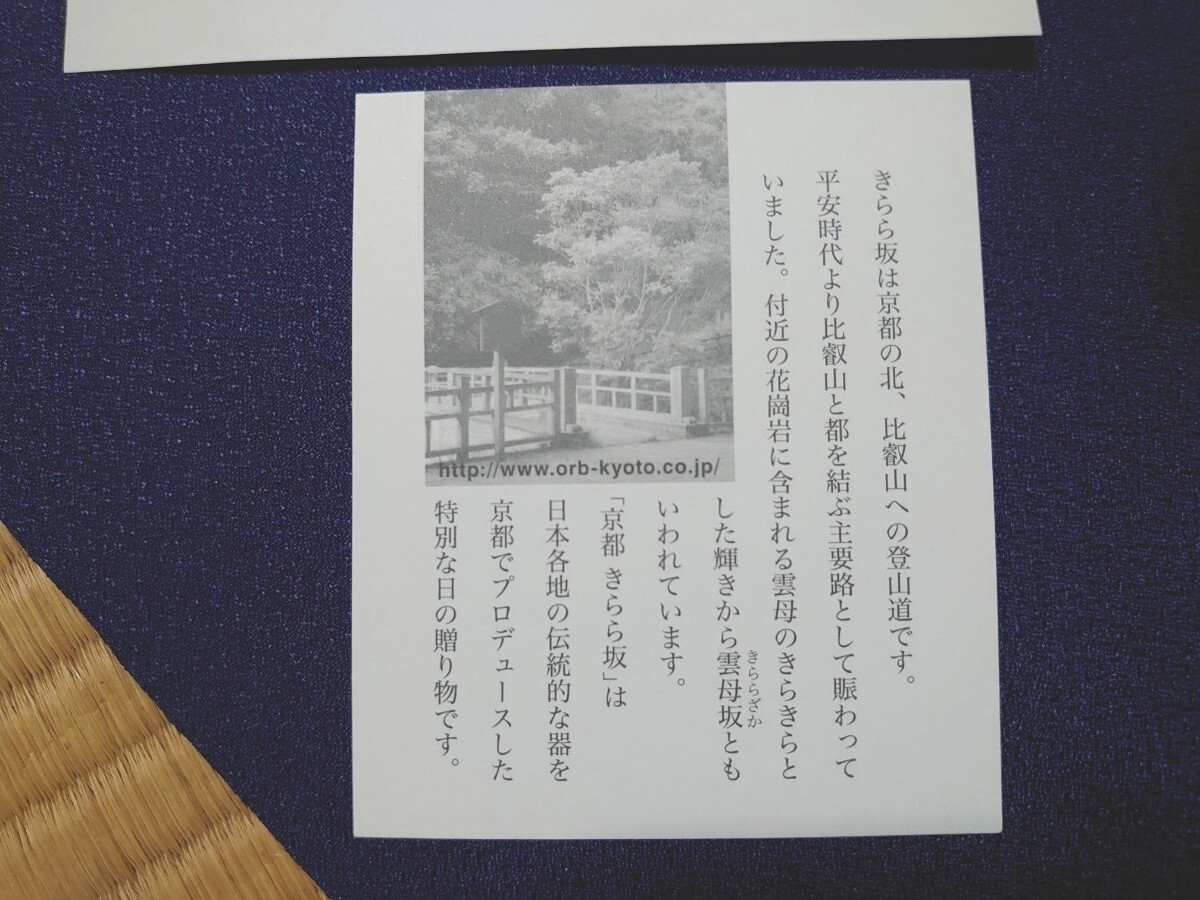 きらら坂は京都の北、比叡山への登山道です。
平安時代より比叡山と都を結ぶ主要路として賑わって
いました。付近の花崗岩に含まれる雲母のきらきらと
した輝きから雲母坂とも
きららざか
いわれています。
「京都 きらら坂」は
日本各地の伝統的な器を
京都でプロデュースした
特別な日の贈り物です。
http://www.orb-kyoto.co.jp/